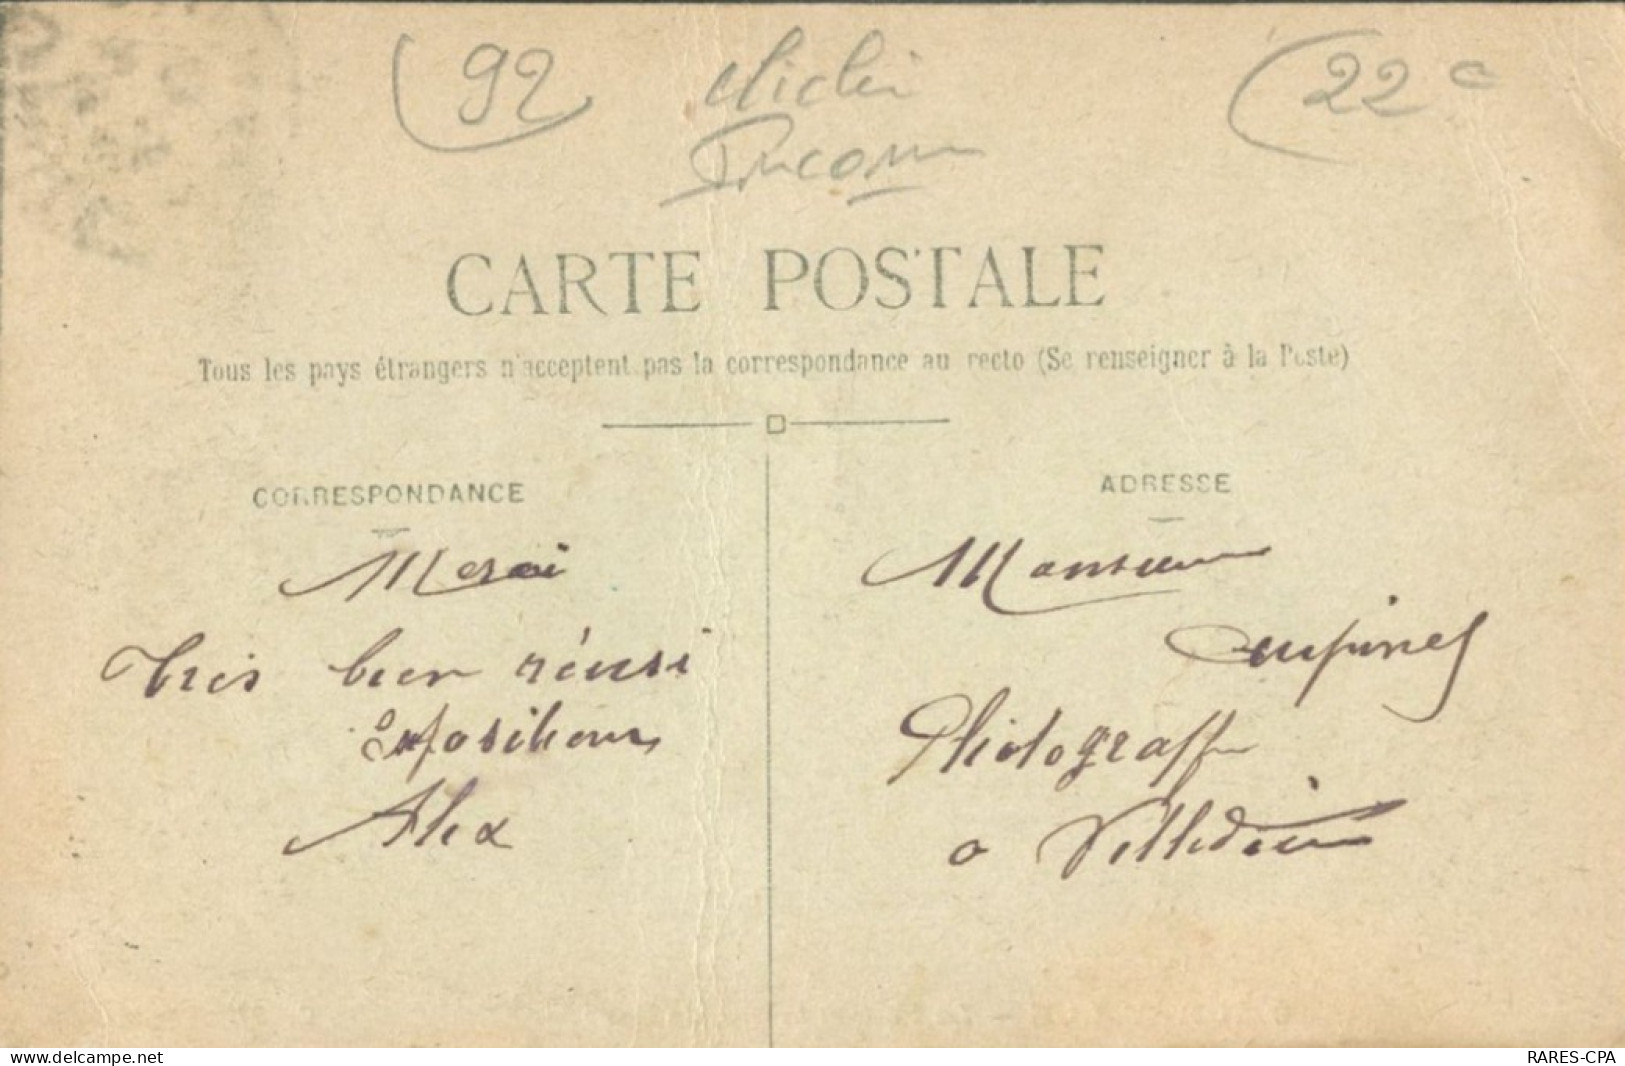 92
22 e
CARTE POSTALE
Tous les pays étrangers n'acceptent pas la correspondance au recto (Se renseigner à la Poste)
CORRESPONDANCE
ADRESSE
Merci
très bien réussi
Expositions
Alex
Monsieur
Photographe
a Villedieu
www.delcampe.net
RARES-CPA